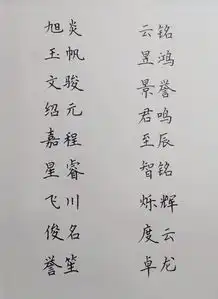 旭炎
玉帆
文骏
绍元
嘉程
星睿
飞川
俊名
誉笙
云铭
昱鸿
景誉
君鸣
至辰
智铭
烁辉
度云
卓龙